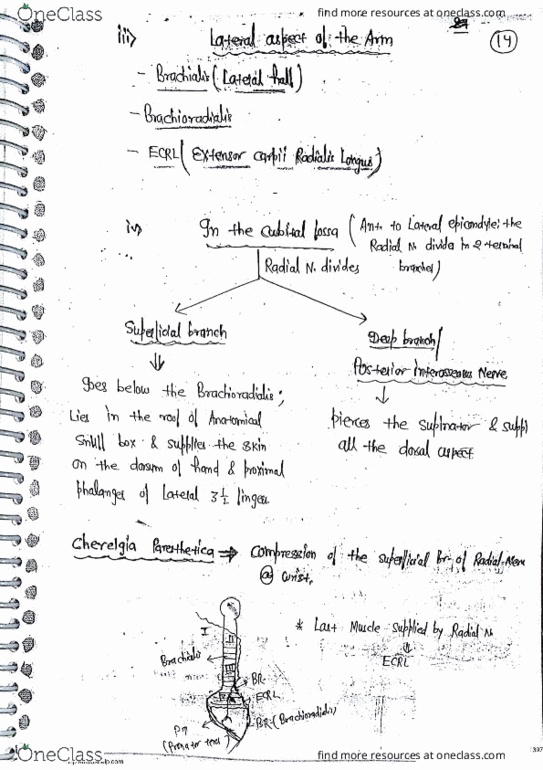 OneClass
find more resources at oneclass.com
14
iii> Lateral aspect of the Arm
- Brachialis (Lateral half)
- Brachioradialis
- ECRL (Extensor carpii Radialis Longus)
iv> In the cubital fossa (Ant. to Lateral epicondyle; the
Radial N. divides in 2 terminal
branches)
Radial N. divides
Superficial branch
Deep branch/
Posterior interosseous Nerve
Goes below the Brachioradialis;
Lies in the roof of Anatomical
Snuff box & supplies the skin
on the dorsum of hand & proximal
phalanges of Lateral 3 1/2 fingers
pierces the supinator & suppl
all the dorsal aspect
Cherelgia Paresthetica ⇒ Compression of the superficial Br. of Radial Nerve
@ wrist.
* Last Muscle supplied by Radial N.
ECRL
I
II
III
Brachialis
BR
ECRL
BR (Brachioradialis)
PT
(Pronator teres)
OneClass
find more resources at oneclass.com